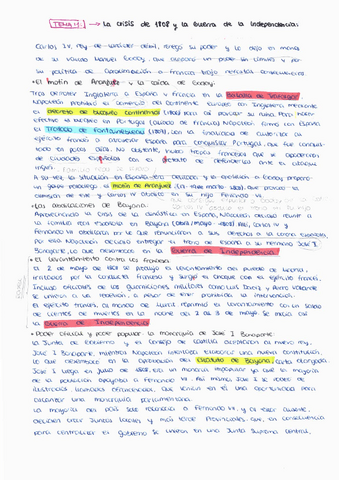 TEMA 4: → La crisis de 1808 y la Guerra de la Independencia:
Carlos IV, rey de carácter débil, relegó su poder y lo dejó en manos
de su valido Manuel Godoy, que alcanzó un poder sin límites y por
su política de aproximación a Francia trajo nefastas consecuencias.
• El motín de Aranjuez y la caída de Godoy.
Tras derrotar Inglaterra a España y Francia en la Batalla de Trafalgar
Napoleón prohibió el comercio del continente europeo con Inglaterra, mediante
el decreto de bloqueo continental (1806) para así provocar su ruina. Para hacer
efectivo el bloqueo en Portugal (aliado de Francia) Napoleón firmó con España
el Tratado de Fontainebleau (1807), con la finalidad de autorizar al
ejército francés a atravesar España para conquistar Portugal, que fue conquis-
tado en pocos días. No obstante, hubo tropas francesas que se apoderaron
de ciudades españolas con el pretexto de defenderlas ante los
A su vez, la situación en España era delicada y el rechazo a Godoy preparó
un golpe palaciego: el motín de Aranjuez (17-18 de marzo 1808), que provocó la
de éste y Carlos IV abdicó en su hijo Fernando VII.
• Las abdicaciones de Bayona:
Aprovechando la crisis de la dinastía en España, Napoleón decidió reunir a
la familia real española en Bayona (abril/mayo - 1808). Así, Carlos IV y
Fernando VII abdicaron en él que renunciaron a sus derechos a la corona española.
Por eso Napoleón decidió entregar el trono de España a su hermano José I
Bonaparte, lo que desembocó en la Guerra de Independencia.
• El levantamiento contra los franceses
El 2 de mayo de 1808 se produjo el levantamiento del pueblo de Madrid,
irritados por la conducta francesa y surgió el choque con el ejército francés.
Incluso oficiales de las guarniciones militares como Luis Daoiz y Pedro Velarde
se unieron a los rebeldes, a pesar de tener prohibida la intervención.
El ejército francés, al mando de Murat reprimió el levantamiento con un saldo
de cientos de muertes en la noche del 2 al 3 de mayo. Se inicia así
la Guerra de Independencia.
• Poder oficial y poder popular: la monarquía de José I Bonaparte.
La Junta de Gobierno y el Consejo de Castilla aceptaron al nuevo rey,
José I Bonaparte, mientras Napoleón intentaba establecer una nueva constitución
lo que desembocó en la aprobación del Estatuto de Bayona, carta otorgada.
José I llegó en julio de 1808, era un monarca impopular ya que la mayoría
de la población apoyaba a Fernando VII. Así mismo, José I se rodeó de
ilustrados llamados afrancesados, que veían en él una oportunidad para
levantar una monarquía parlamentaria.
La mayoría del país sólo reconocía a Fernando VII, y al estar ausente,
deciden crear Juntas locales y más tarde Provinciales, que, en consecuencia
para centralizar el gobierno se unieron en una Junta Suprema Central,